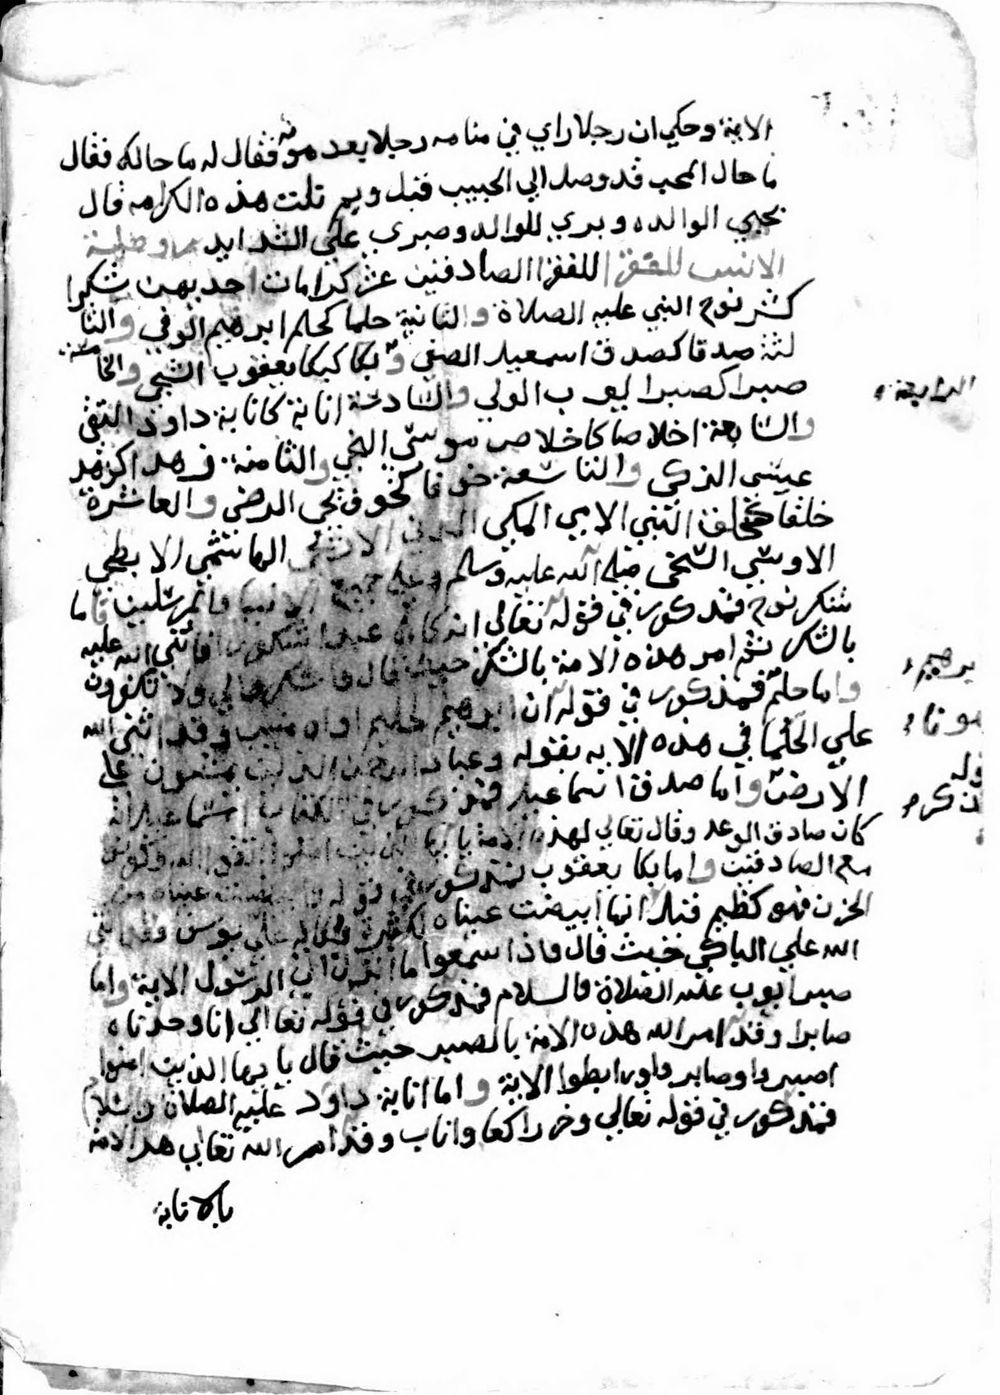 الاية وحكي ان رجلا راي في منامه رجلا بعد موته فقال له ما حالك فقال
ما حال المحب قد وصل الي الحبيب قيل وبم نلت هذه الكرامه قال
بحبي الوالده وبري للوالد وصبري علي الشدايد
الانس للفقرا الصادقين عشر كرامات احديهن شكرا
كشر نوح النبي عليه الصلاة والثانية حلما كحلم ابرهيم الوفي والثا
لثة صدقا كصدق اسمعيل الصفي وبكا كبكا يعقوب الشجي والخامسة
صبرا كصبر ايوب الولي والسادسة انابة كانابة داود التقي
والسابعة اخلاصا كاخلاص موسي النجي والثامنة زهدا كزهد
عيسي الزكي والتاسعة خوفا كخوف يحي الرضي والعاشرة
خلقا كخلق النبي الامي المكي المدني الهاشمي الابطحي
الاوسي السخي صلي الله عليه وسلم وعلي جميع الانبيا والمرسلين فاما
شكر نوح فمذكور في قوله تعالي انه كان عبدا شكورا فاثني الله عليه
بالشكر ثم امر هذه الامة بالشكر حيث قال واشكروا لي ولا تكفرون
واما حلم فمذكور في قوله ان ابرهيم لحليم اواه منيب وقد اثني الله
علي الحلما في هذه الاية بقوله وعباد الرحمن الذين يمشون علي
الارض واما صدق اسماعيل فمذكور في الكتاب اسماعيل انه
كان صادق الوعد وقال تعالي لهذه الامة يا ايها الذين امنوا اتقوا الله وكونوا
مع الصادقين واما بكا يعقوب فمذكور في قوله وابيضت عيناه من
الحزن فهو كظيم قيل انما ابيضت عيناه لكثرة بكايه علي يوسف وقد اثني
الله علي الباكي حيث قال واذا سمعوا ما انزل الي الرسول الاية واما
صبر ايوب عليه الصلاة والسلام فمذكور في قوله تعالي انا وجدناه
صابرا وقد امر الله هذه الامة بالصبر حيث قال يا ايها الذين امنوا
اصبروا وصابروا ورابطوا الاية واما انابة داود عليه الصلاة والسلام
فمذكور في قوله تعالي وخر راكعا واناب وقد امر الله تعالي هذه الامة
بالانابة
الرابعة
برهيم
هونا
قوله